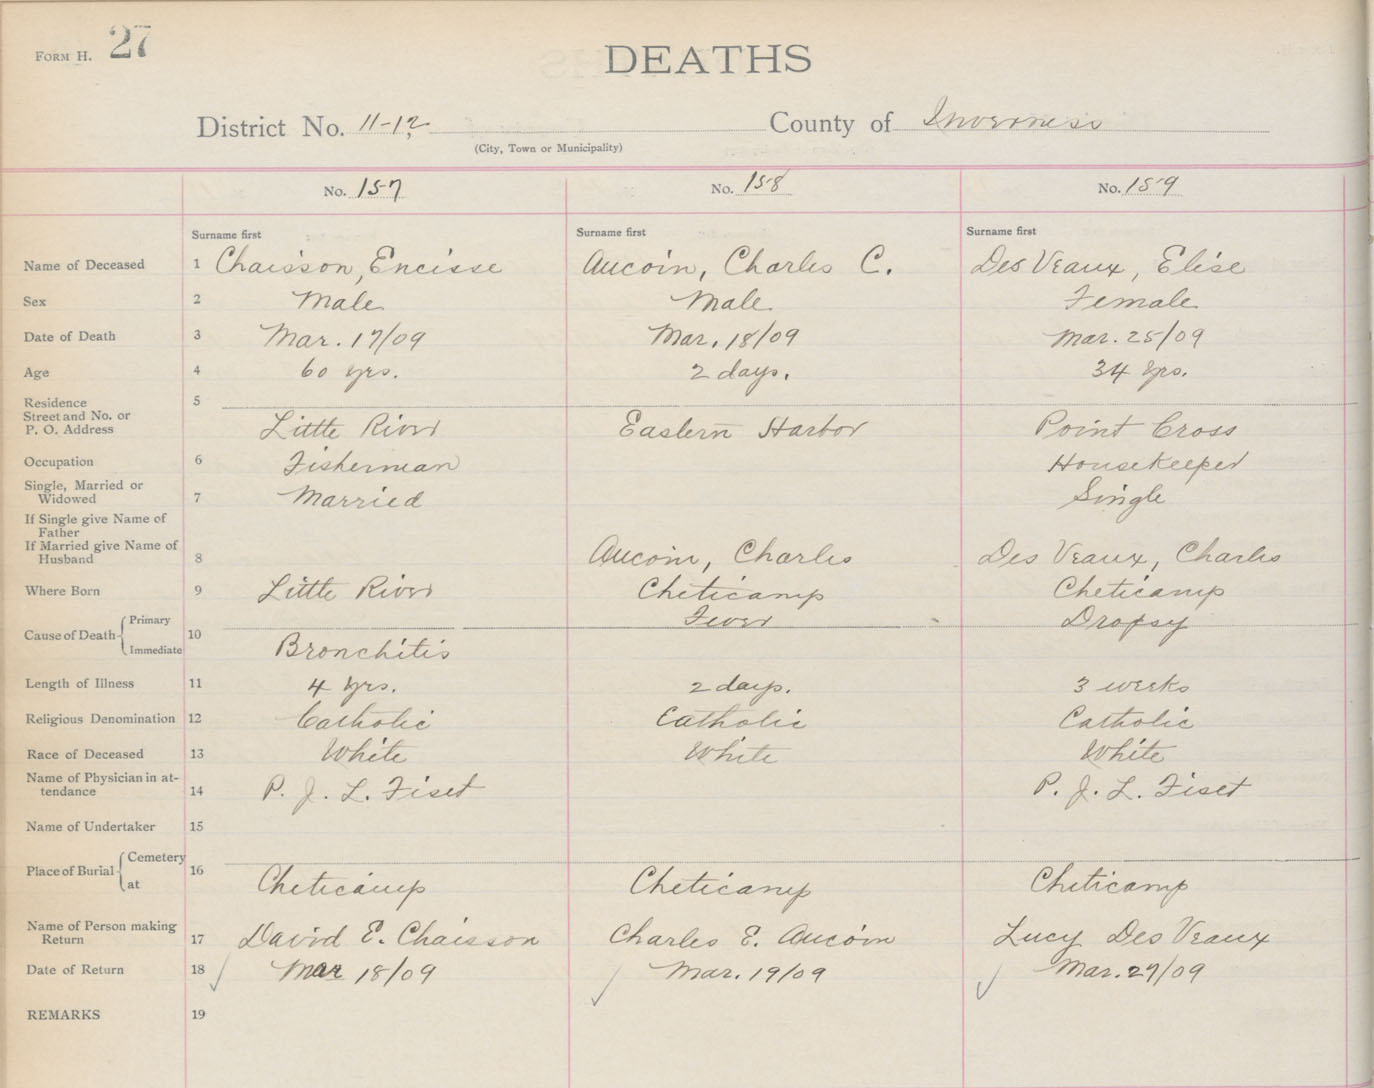 FORM H. 27
DEATHS
District No. 11-12 County of Inverness
(City, Town or Municipality)
No. 157 No. 158 No. 159
Surname first Surname first Surname first
Name of Deceased 1 Chaisson, Encisse Aucoin, Charles C. Des Veaux, Elise
Sex 2 Male Male Female
Date of Death 3 Mar. 17/09 Mar. 18/09 Mar. 25/09
Age 4 60 yrs. 2 days. 34 yrs.
Residence 5
Street and No. or
P. O. Address Little River Eastern Harbor Point Cross
Occupation 6 Fisherman Housekeeper
Single, Married or
Widowed 7 Married Single
If Single give Name of
Father
If Married give Name of
Husband 8 Aucoin, Charles Des Veaux, Charles
Where Born 9 Little River Cheticamp Cheticamp
Cause of Death Primary 10 Fever Dropsy
Immediate Bronchitis
Length of Illness 11 4 yrs. 2 days. 3 weeks
Religious Denomination 12 Catholic Catholic Catholic
Race of Deceased 13 White White White
Name of Physician in at-
tendance 14 P. J. L. Fiset P. J. L. Fiset
Name of Undertaker 15
Place of Burial Cemetery 16
at Cheticamp Cheticamp Cheticamp
Name of Person making
Return 17 David E. Chaisson Charles E. Aucoin Lucy Des Veaux
Date of Return 18 Mar 18/09 Mar. 19/09 Mar. 27/09
REMARKS 19